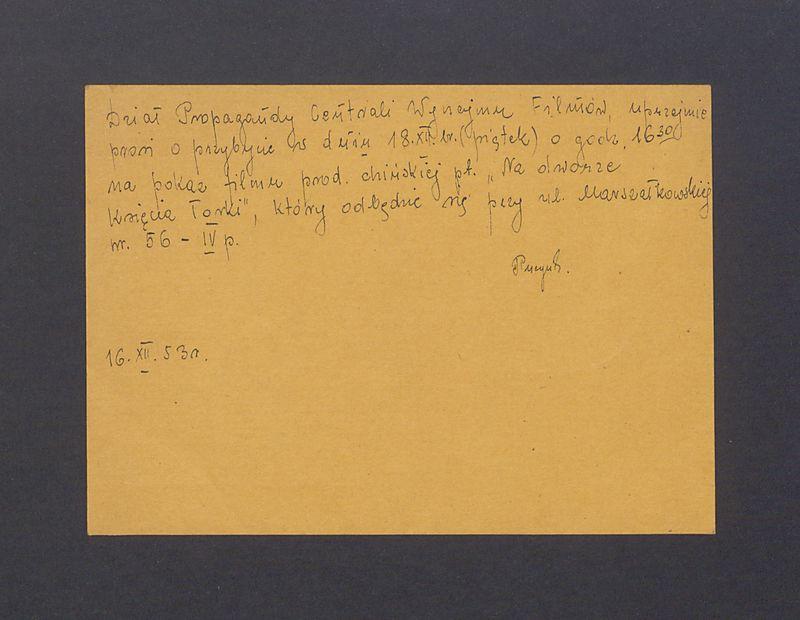 Dział Propagandy Centrali Wynajmu Filmów, uprzejmie
prosi o przybycie w dniu 18.XII.br. (piątek) o godz. 16³⁰
na pokaz filmu prod. chińskiej pt. „Na dworze
Księcia Torki", który odbędzie się przy ul. Marszałkowskiej
nr. 56 - IV p.
16. XII. 53r.